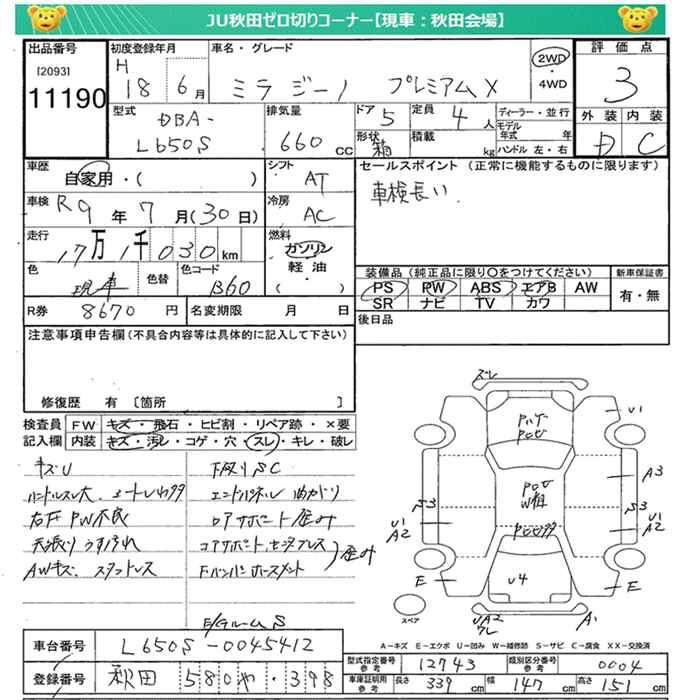 JU秋田ゼロ切りコーナー【現車：秋田会場】
出品番号 [2093] 11190
初度登録年月 H 18 6月
車名・グレード ミラジーノ プレミアムX
2WD・4WD
評価点 3
外装 D 内装 C
型式 DBA-L650S
排気量 660 CC
ドア 5 定員 4人
形状 箱 積載 kg
ディーラー・並行
モデル年式 年
ハンドル 左・右
車歴 自家用・( )
シフト AT
セールスポイント (正常に機能するものに限ります)
車検長い.
車検 R9年7月(30日)
冷房 AC
走行 17万1千030km
燃料 ガソリン 軽油 ( )
色 現車 色替 色コード B60
装備品 (純正品に限り○をつけてください)
PS PW ABS エアB AW
SR ナビ TV カワ
新車保証書 有・無
R券 8670円 名変期限 月 日
後日品
注意事項申告欄 (不具合内容等は具体的に記入して下さい)
修復歴 有 〔箇所 〕
検査員 FW キズ・飛石・ヒビ割・リペア跡・×要
記入欄 内装 キズ・汚レ・コゲ・穴・スレ・キレ・破レ
キズU 下廻りSC
ハンドルスレ大. シートしわクタ エンドパネル 曲がり
右F PW不良 ロアサポート歪み
天張りうすよごれ コアサポート.センタブレス 歪み
AWキズ. スタッドレス Fバンパーホースメント
E/GルームS
スレ
U1
A3
U1
A2
E
U4
UA2
ワレ
A1
E
スペア
A－キズ E－エクボ U－凹み W－補修跡 S－サビ C－腐食 XX－交換済
車台番号 L650S-0045412
型式指定番号 参考 12743 類別区分番号 参考 0004
登録番号 秋田 580 や・398
車庫証明用 参考 長さ 339cm 幅 147cm 高さ 151cm